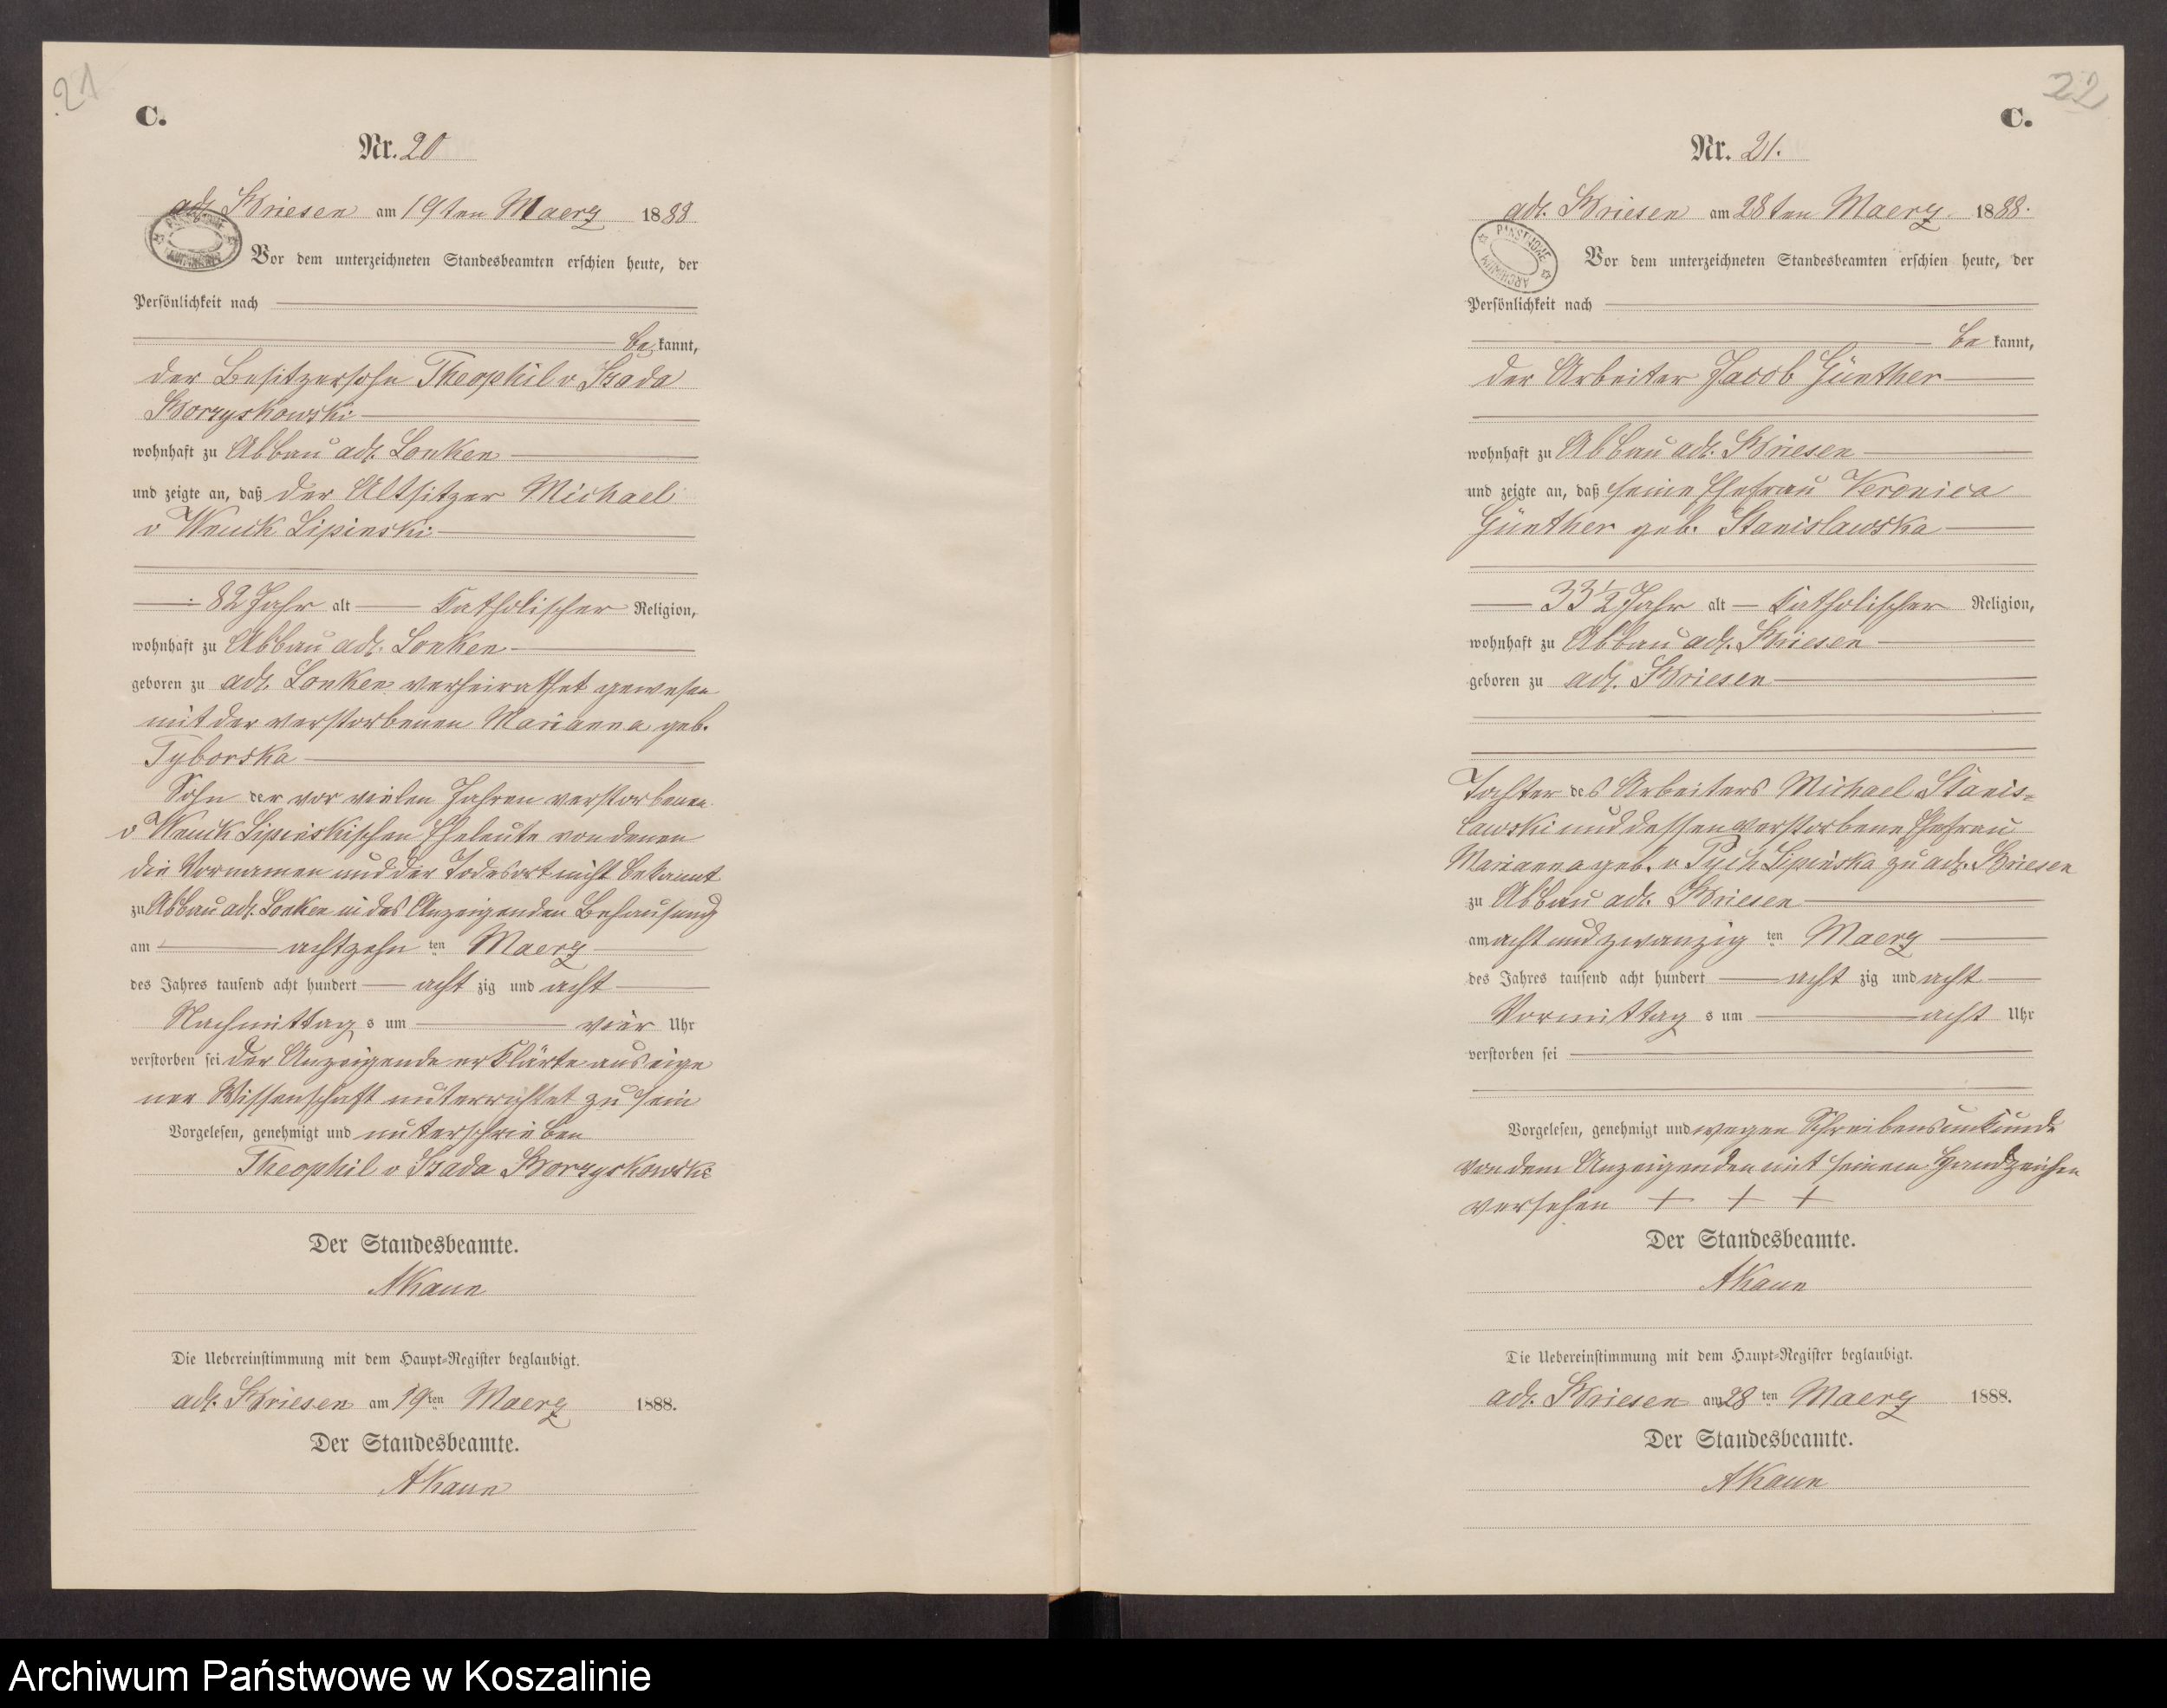 21
C.
Nr. 20
adl. Briesen am 19ten Maerz 1888
Vor dem unterzeichneten Standesbeamten erschien heute, der
Persönlichkeit nach
be kannt,
der Besitzersohn Theophil v Szada
Borzyskowski
wohnhaft zu Abbau adl. Lonken
und zeigte an, daß der Altsitzer Michael
v Wnuck Lipinski
82 Jahr alt katholischer Religion,
wohnhaft zu Abbau adl. Lonken
geboren zu adl. Lonken verheirathet gewesen
mit der verstorbenen Marianna geb.
Tyborska
Sohn der vor vielen Jahren verstorbenen
v Wnuck Lipinskischen Eheleute von denen
die Vornamen und der Todesort nicht bekannt
zu Abbau adl. Lonken in des Anzeigenden Behausung
am achtzehn ten Maerz
des Jahres tausend acht hundert acht zig und acht
Nachmittag s um vier Uhr
verstorben sei der Anzeigende erklärte aus eige
ner Wissenschaft unterrichtet zu sein
Vorgelesen, genehmigt und unterschrieben
Theophil v Szada Borzyskowski
Der Standesbeamte.
AKaun
Die Uebereinstimmung mit dem Haupt-Register beglaubigt.
adl. Briesen am 19ten Maerz 1888.
Der Standesbeamte.
AKaun
22
C.
Nr. 21.
adl. Briesen am 28ten Maerz 1888.
PANSTWOWE ARCHIWUM
Vor dem unterzeichneten Standesbeamten erschien heute, der
Persönlichkeit nach
be kannt,
der Arbeiter Jacob Günther
wohnhaft zu Abbau adl. Briesen
und zeigte an, daß seine Ehefrau Veronica
Günther geb. Stanislawska
33 1/2 Jahr alt katholischer Religion,
wohnhaft zu Abbau adl. Briesen
geboren zu adl. Briesen
Tochter des Arbeiters Michael Stanis=
lawski und dessen verstorbene Ehefrau
Marianna geb. v Pych Lipinska zu adl. Briesen
zu Abbau adl. Briesen
am acht und zwanzig ten Maerz
des Jahres tausend acht hundert acht zig und acht
Vormittag s um acht Uhr
verstorben sei
Vorgelesen, genehmigt und wegen Schreibensunkunde
von dem Anzeigenden mit seinem Handzeichen
versehen + + +
Der Standesbeamte.
AKaun
Die Uebereinstimmung mit dem Haupt-Register beglaubigt.
adl. Briesen am 28 ten Maerz 1888.
Der Standesbeamte.
AKaun
Archiwum Państwowe w Koszalinie